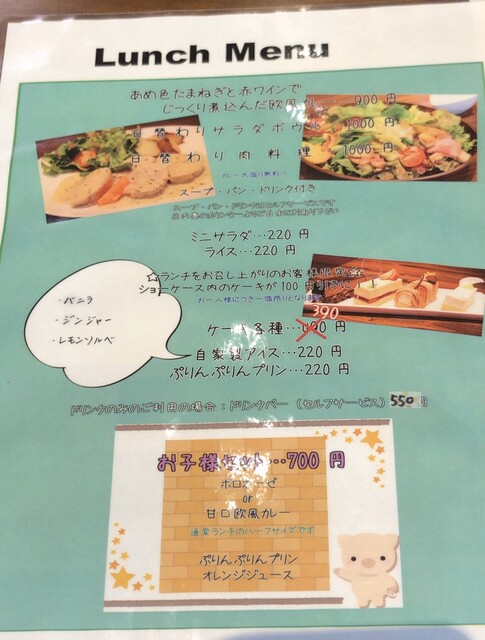 Lunch Menu
あめ色たまねぎと赤ワインで
じっくり煮込んだ欧風カレー…900 円
日替わりサラダボウル…1000 円
日替わり肉料理…1000 円
カレー大盛り無料！
スープ・パン・ドリンク付き
スープ・パン・ドリンクはセルフサービスです
ミニサラダ…220 円
ライス…220 円
☆ランチをお召し上がりのお客様限定☆
ショーケース内のケーキが 100 円引きに！
お一人様につき一個限りとなります
390
ケーキ各種…490 円
自家製アイス…220 円
ぷりんぷりんプリン…220 円
・バニラ
・ジンジャー
・レモンソルベ
ドリンクのみのご利用の場合：ドリンクバー（セルフサービス）550円
お子様セット…700 円
ボロネーゼ
or
甘口欧風カレー
通常ランチのハーフサイズです
ぷりんぷりんプリン
オレンジジュース